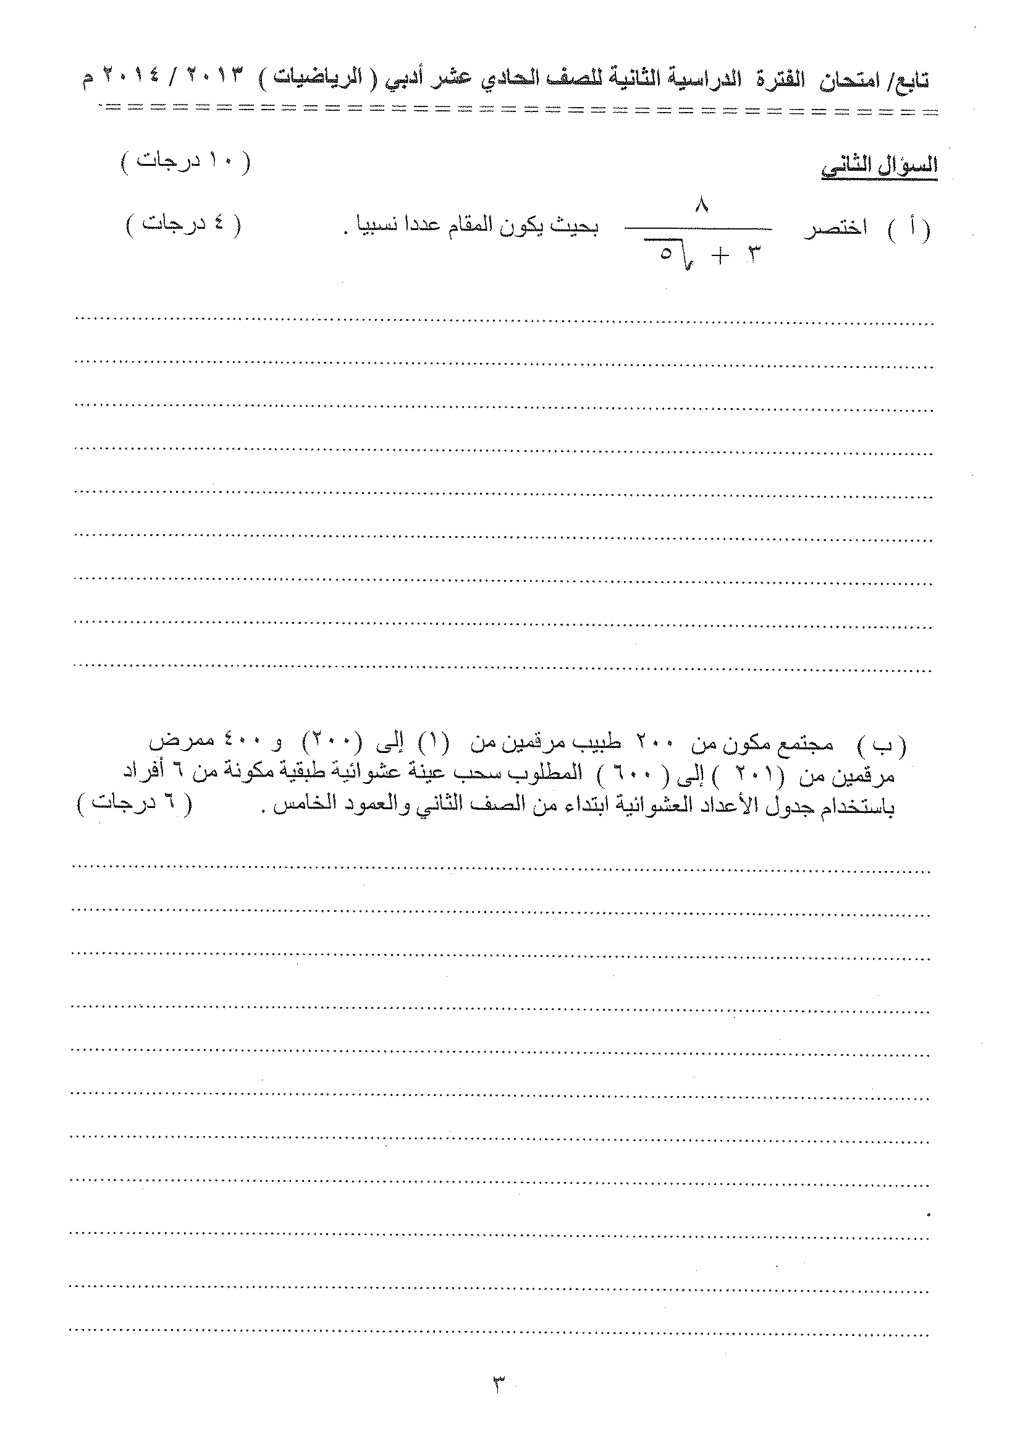 تابع/ امتحان الفترة الدراسية الثانية للصف الحادي عشر أدبي ( الرياضيات ) ٢٠١٣ / ٢٠١٤ م
السؤال الثاني ( ١٠ درجات )
( أ ) اختصر ٨ / ٣ + √٥ بحيث يكون المقام عددا نسبيا . ( ٤ درجات )
( ب ) مجتمع مكون من ٢٠٠ طبيب مرقمين من (١) إلى (٢٠٠) و ٤٠٠ ممرض
مرقمين من (٢٠١ ) إلى ( ٦٠٠ ) المطلوب سحب عينة عشوائية طبقية مكونة من ٦ أفراد
باستخدام جدول الأعداد العشوائية ابتداء من الصف الثاني والعمود الخامس . ( ٦ درجات )
٣